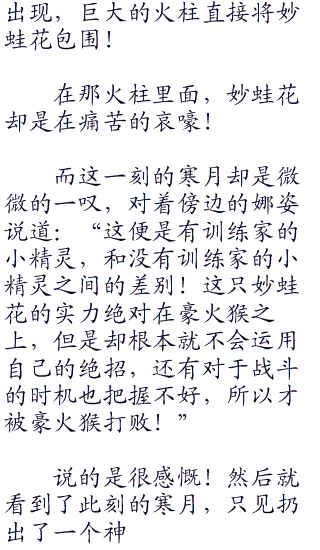 出现，巨大的火柱直接将妙
蛙花包围！
在那火柱里面，妙蛙花
却是在痛苦的哀嚎！
而这一刻的寒月却是微
微的一叹，对着傍边的娜姿
说道：“这便是有训练家的
小精灵，和没有训练家的小
精灵之间的差别！这只妙蛙
花的实力绝对在豪火猴之
上，但是却根本就不会运用
自己的绝招，还有对于战斗
的时机也把握不好，所以才
被豪火猴打败！”
说的是很感慨！然后就
看到了此刻的寒月，只见扔
出了一个神